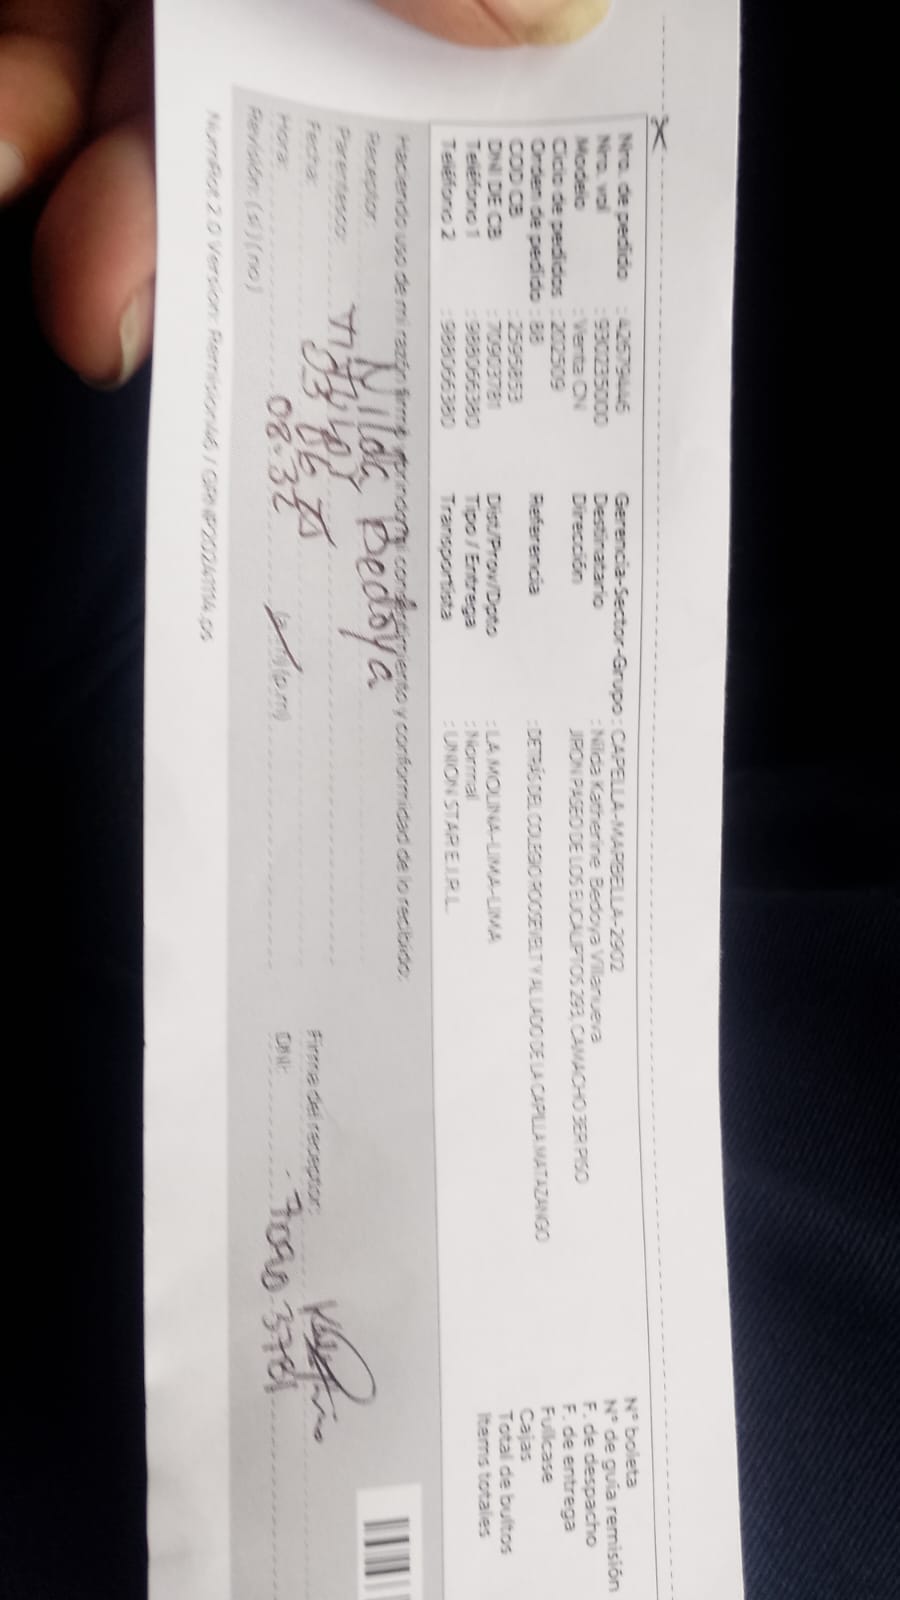 Nro. de pedido : 426794446
Nro. vol : 930235000
Modelo : Venta CN
Ciclo de pedidos : 202509
Orden de pedido : 88
COD CB : 25958633
DNI DE CB : 70903781
Teléfono 1 : 988066380
Teléfono 2 : 988066380
Gerencia-Sector-Grupo : CAPELLA-MARBELLA-2902
Destinatario : Nilda Katherine Bedoya Villanueva
Dirección JIRON PASEO DE LOS EUCALIPTOS 293, CAMACHO 3ER PISO
Referencia : DETRÁS DEL COLEGIO ROOSEVELT Y AL LADO DE LA CAPILLA MATAZANGO
Dist/Prov/Dpto : LA MOLINA-LIMA-LIMA
Tipo / Entrega : Normal
Transportista : UNION STAR E.I.R.L.
N° boleta
N° de guía remisión
F. de despacho
F. de entrega
Fullcase
Cajas
Total de bultos
Items totales
Haciendo uso de mi razón firmo conformidad de lo recibido:
Receptor: Nilda Bedoya
Parentesco: Titular
Fecha:
Hora: (a.m) (p.m)
Revisión: ( si ) ( no )
Firma del receptor:
DNI: 70903781